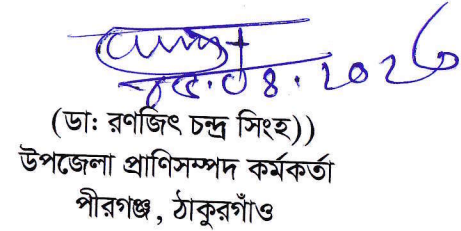 (ডা: রণজিৎ চন্দ্র সিংহ))
উপজেলা প্রাণিসম্পদ কর্মকর্তা
পীরগঞ্জ, ঠাকুরগাঁও